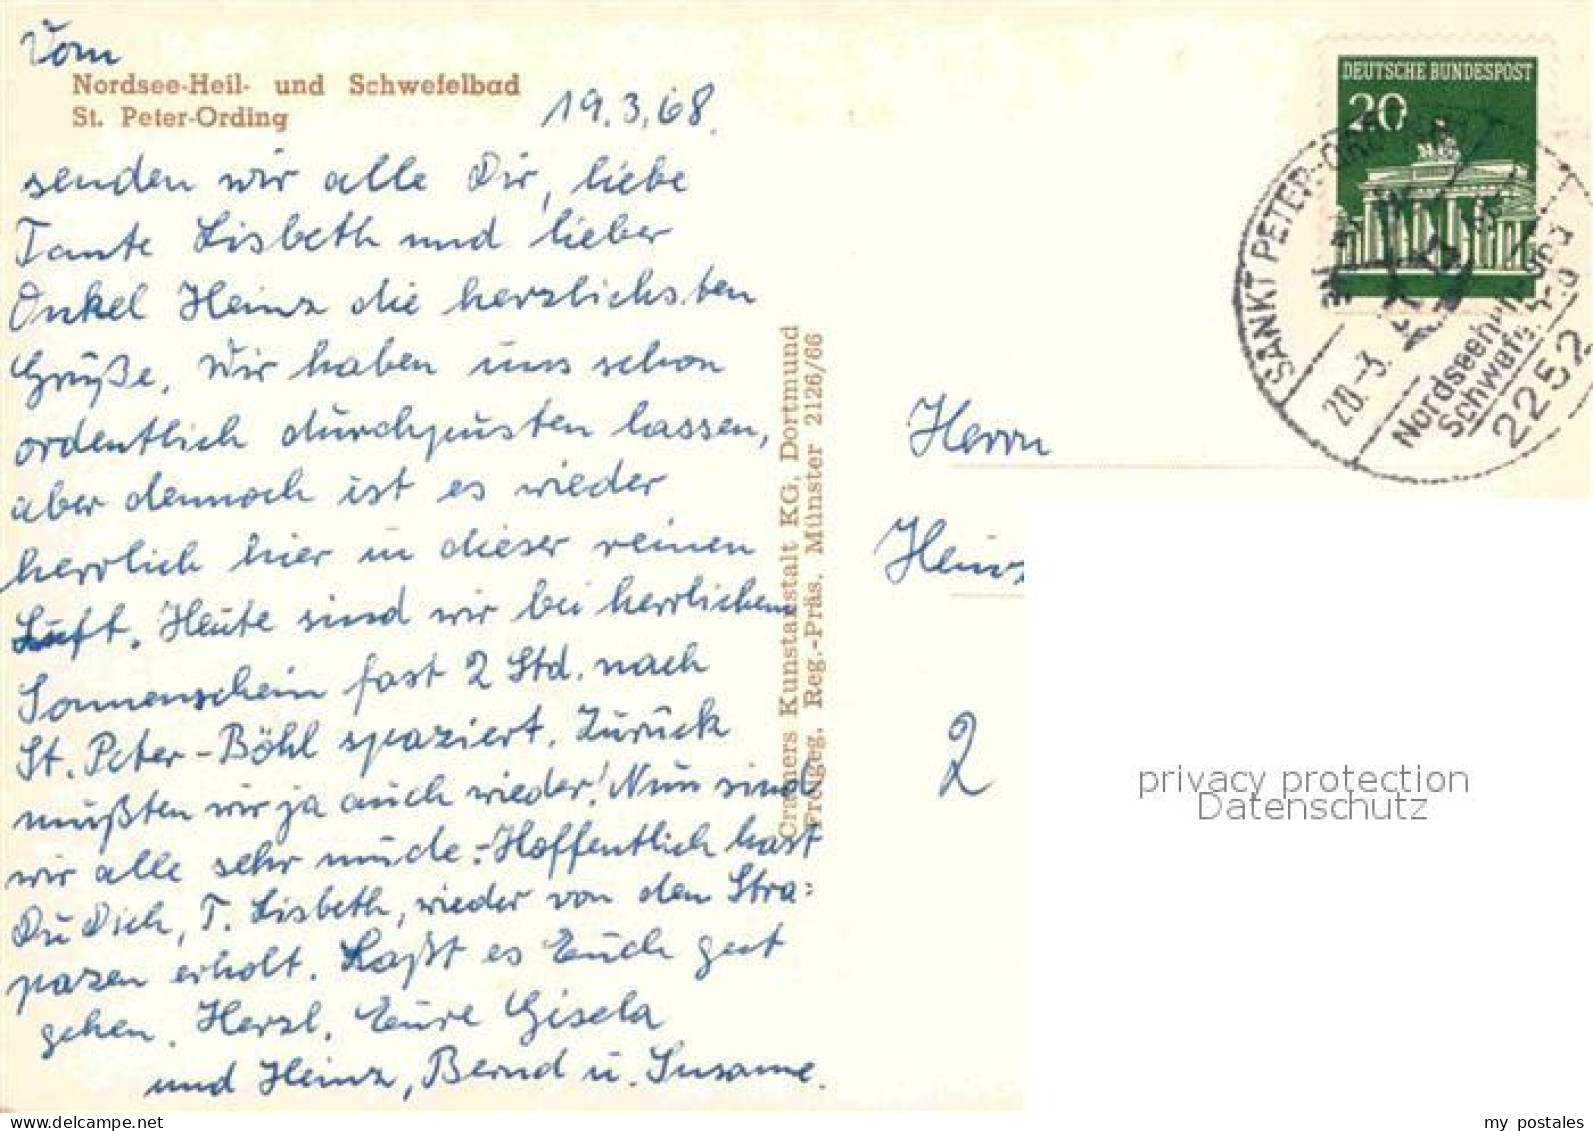 Vom
Nordsee-Heil- und Schwefelbad
St. Peter-Ording
19.3.68.
senden wir alle Dir, liebe
Tante Lisbeth und lieber
Onkel Heinz die herzlichsten
Grüße. Wir haben uns schon
ordentlich durchpusten lassen,
aber dennoch ist es wieder
herrlich hier in dieser reinen
Luft. Heute sind wir bei herrlichem
Sonnenschein fast 2 Std. nach
St. Peter-Böhl spaziert. Zurück
mußten wir ja auch wieder! Nun sind
wir alle sehr müde.- Hoffentlich hast
Du Dich, T. Lisbeth, wieder von den Stra=
pazen erholt. Laßt es Euch gut
gehen. Herzl. Eure Gisela
und Heinz, Bernd u. Susanne.
Cramers Kunstanstalt KG, Dortmund
Freigeg. Reg.-Präs. Münster 2126/66
DEUTSCHE BUNDESPOST
20
SANKT PETER-ORDING
20.-3.
Nordseeheil- und
Schwefelbad
2252
Herrn
Heinz
2
privacy protection
Datenschutz
my postales